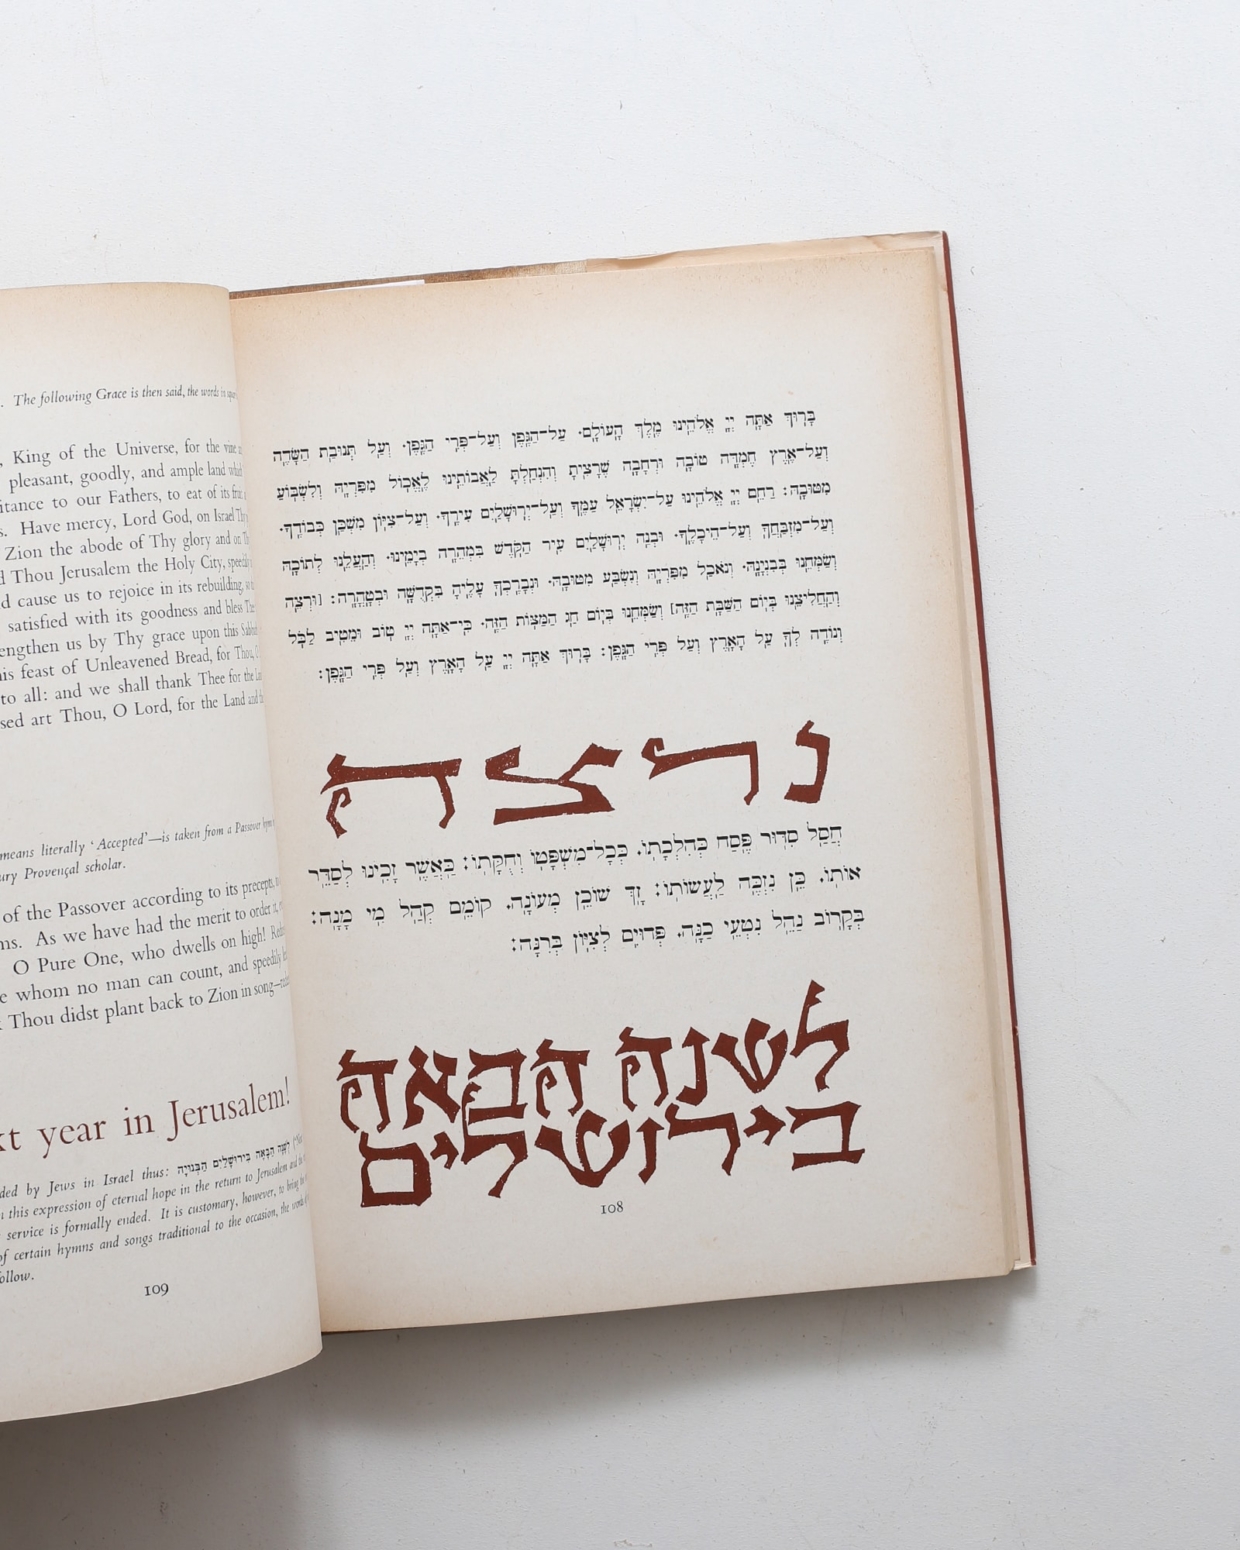 . The following Grace is then said, the words in
, King of the Universe, for the vine
pleasant, goodly, and ample land which
itance to our Fathers, to eat of its fruit
s. Have mercy, Lord God, on Israel Thy
Zion the abode of Thy glory and on
d Thou Jerusalem the Holy City, speedily
d cause us to rejoice in its rebuilding,
satisfied with its goodness and bless
engthen us by Thy grace upon this
is feast of Unleavened Bread, for Thou,
to all: and we shall thank Thee for the
sed art Thou, O Lord, for the Land and
means literally ‘Accepted’—is taken from a Passover
ury Provençal scholar.
of the Passover according to its precepts,
ms. As we have had the merit to order it,
O Pure One, who dwells on high!
e whom no man can count, and speedily
Thou didst plant back to Zion in song—
xt year in Jerusalem!
ded by Jews in Israel thus: לְשָׁנָה הַבָּאָה בִּירוּשָׁלַיִם הַבְּנוּיָה
this expression of eternal hope in the return to Jerusalem and
service is formally ended. It is customary, however, to bring
of certain hymns and songs traditional to the occasion, the words
ollow.
109
בָּרוּךְ אַתָּה יְיָ אֱלֹהֵינוּ מֶלֶךְ הָעוֹלָם. עַל־הַגֶּפֶן וְעַל־פְּרִי הַגֶּפֶן. וְעַל תְּנוּבַת הַשָּׂדֶה
וְעַל־אֶרֶץ חֶמְדָּה טוֹבָה וּרְחָבָה שֶׁרָצִיתָ וְהִנְחַלְתָּ לַאֲבוֹתֵינוּ לֶאֱכוֹל מִפִּרְיָהּ וְלִשְׂבּוֹעַ
מִטּוּבָהּ: רַחֵם יְיָ אֱלֹהֵינוּ עַל־יִשְׂרָאֵל עַמֶּךָ וְעַל־יְרוּשָׁלַיִם עִירֶךָ. וְעַל־צִיּוֹן מִשְׁכַּן כְּבוֹדֶךָ.
וְעַל־מִזְבְּחֶךָ וְעַל־הֵיכָלֶךָ. וּבְנֵה יְרוּשָׁלַיִם עִיר הַקֹּדֶשׁ בִּמְהֵרָה בְיָמֵינוּ. וְהַעֲלֵנוּ לְתוֹכָהּ
וְשַׂמְּחֵנוּ בְּבִנְיָנָהּ. וְנֹאכַל מִפִּרְיָהּ וְנִשְׂבַּע מִטּוּבָהּ. וּנְבָרֶכְךָ עָלֶיהָ בִּקְדֻשָּׁה וּבְטָהֳרָה: [וּרְצֵה
וְהַחֲלִיצֵנוּ בְּיוֹם הַשַּׁבָּת הַזֶּה] וְשַׂמְּחֵנוּ בְּיוֹם חַג הַמַּצּוֹת הַזֶּה. כִּי־אַתָּה יְיָ טוֹב וּמֵטִיב לַכֹּל
וְנוֹדֶה לְּךָ עַל הָאָרֶץ וְעַל פְּרִי הַגֶּפֶן: בָּרוּךְ אַתָּה יְיָ עַל הָאָרֶץ וְעַל פְּרִי הַגֶּפֶן:
נרצה
חֲסַל סִדּוּר פֶּסַח כְּהִלְכָתוֹ. כְּכָל־מִשְׁפָּטוֹ וְחֻקָּתוֹ: כַּאֲשֶׁר זָכִינוּ לְסַדֵּר
אוֹתוֹ. כֵּן נִזְכֶּה לַעֲשׂוֹתוֹ: זָךְ שׁוֹכֵן מְעוֹנָה. קוֹמֵם קְהַל מִי מָנָה:
בְּקָרוֹב נַהֵל נִטְעֵי כַנָּה. פְּדוּיִם לְצִיּוֹן בְּרִנָּה:
לשנה הבאה
בירושלים
108